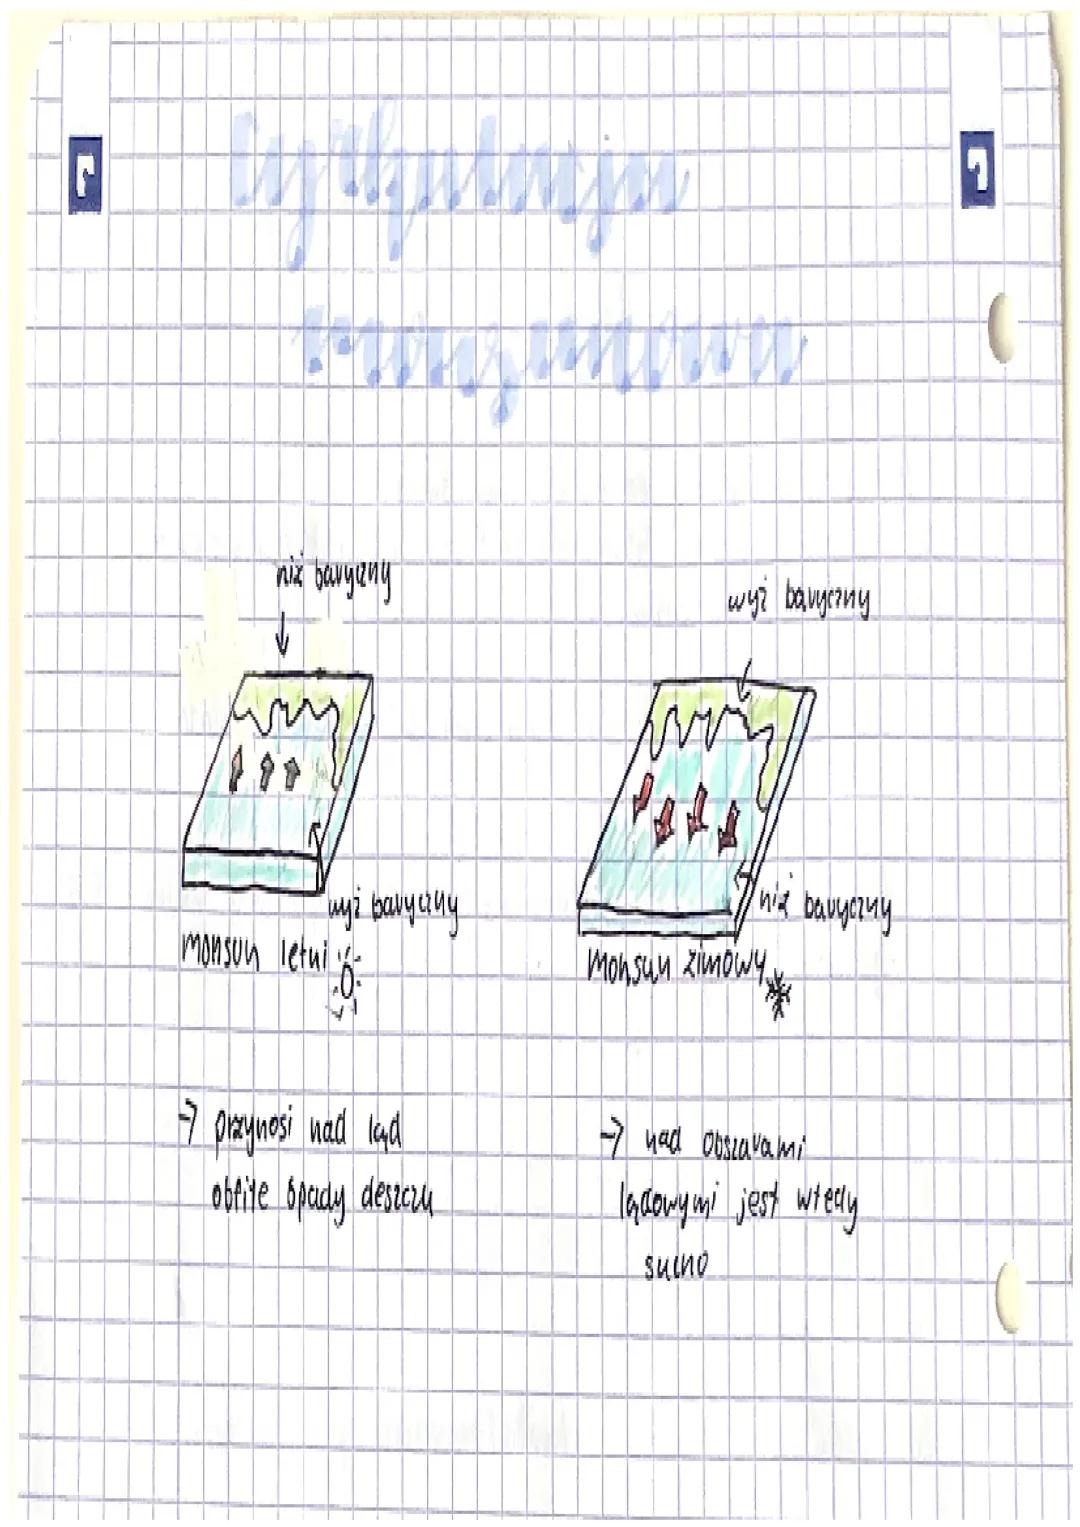 Cyrkulacja
monsunowa
niż baryczny
wyż baryczny
wyż baryczny
niż baryczny
monsun letni
monsun zimowy
→ przynosi nad ląd
obfite opady deszczu
→ nad obszarami
lądowymi jest wtedy
sucho